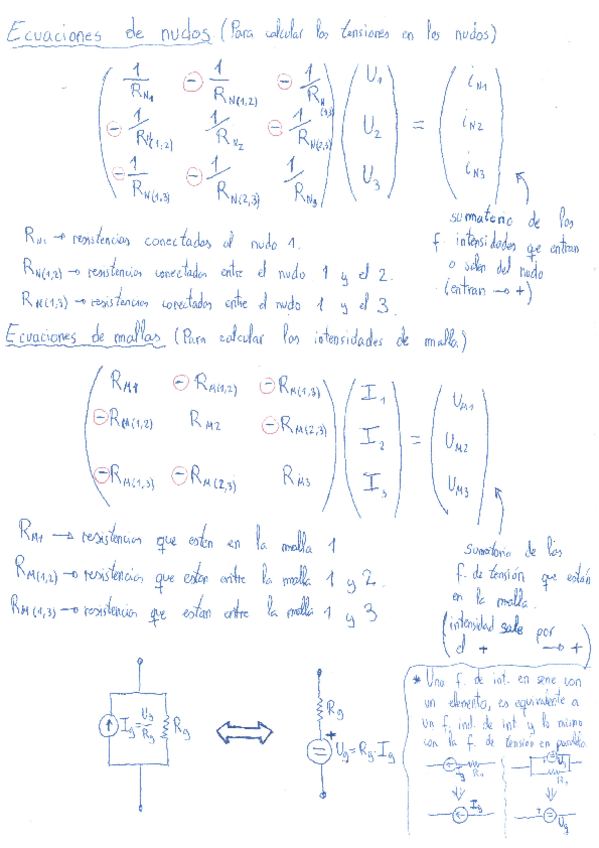 Ecuaciones de nudos (Para calcular las tensiones en los nudos)
1/R_N1 - 1/R_N(1,2) - 1/R_N(1,3) U_1 i_N1
- 1/R_N(1,2) 1/R_N2 - 1/R_N(2,3) U_2 = i_N2
- 1/R_N(1,3) - 1/R_N(2,3) 1/R_N3 U_3 i_N3
sumatorio de las
f. intensidades que entran
o salen del nodo
(entran → +)
R_N1 → resistencias conectadas al nudo 1.
R_N(1,2) → resistencias conectadas entre el nudo 1 y el 2.
R_N(1,3) → resistencias conectadas entre el nudo 1 y el 3.
Ecuaciones de mallas (Para calcular las intensidades de malla)
R_M1 - R_M(1,2) - R_M(1,3) I_1 U_M1
- R_M(1,2) R_M2 - R_M(2,3) I_2 = U_M2
- R_M(1,3) - R_M(2,3) R_M3 I_3 U_M3
R_M1 → resistencias que estan en la malla 1
R_M(1,2) → resistencias que estan entre la malla 1 y 2.
R_M(1,3) → resistencias que estan entre la malla 1 y 3
sumatorio de las
f. de tensión que están
en la malla.
(intensidad sale por
el + → +)
I_g = U_g/R_g R_g
R_g
+
U_g = R_g · I_g
* Una f. de int. en serie con
un elemento, es equivalente a
un f. ind. de int y lo mismo
con la f. de tensión en paralelo
I_g
+ U_g